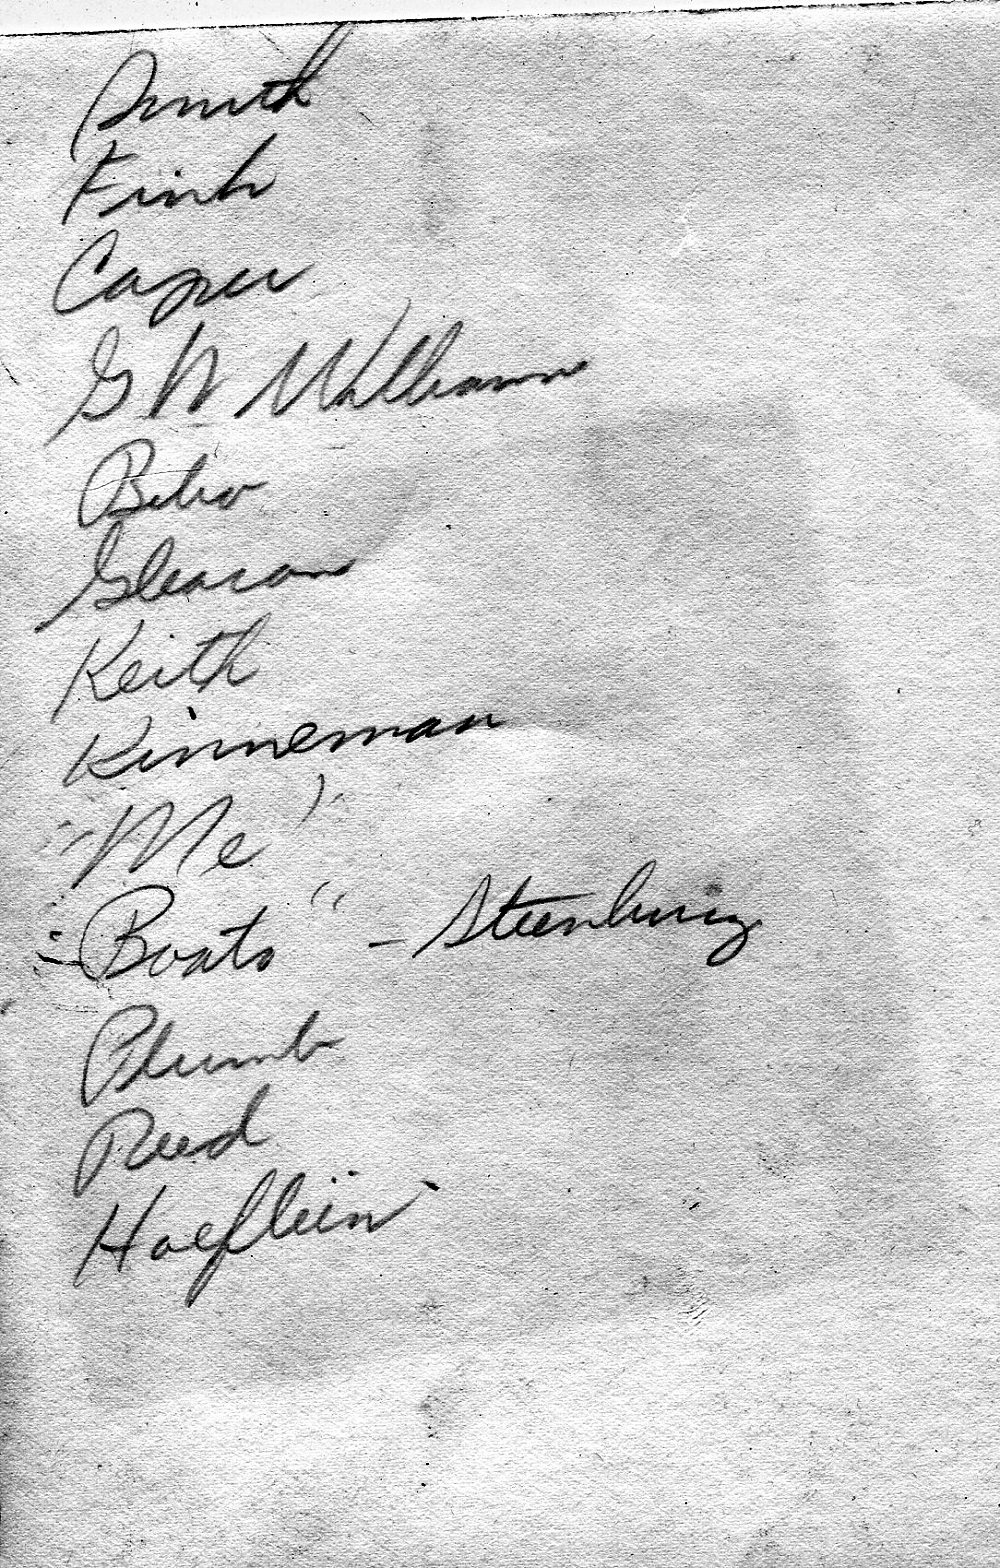 Smith
Finh
Caper
G W Williams
Bibo
Gleason
Keith
Kinneman
"Me"
"Boats" - Steenburg
Plumb
Reed
Hoeflein